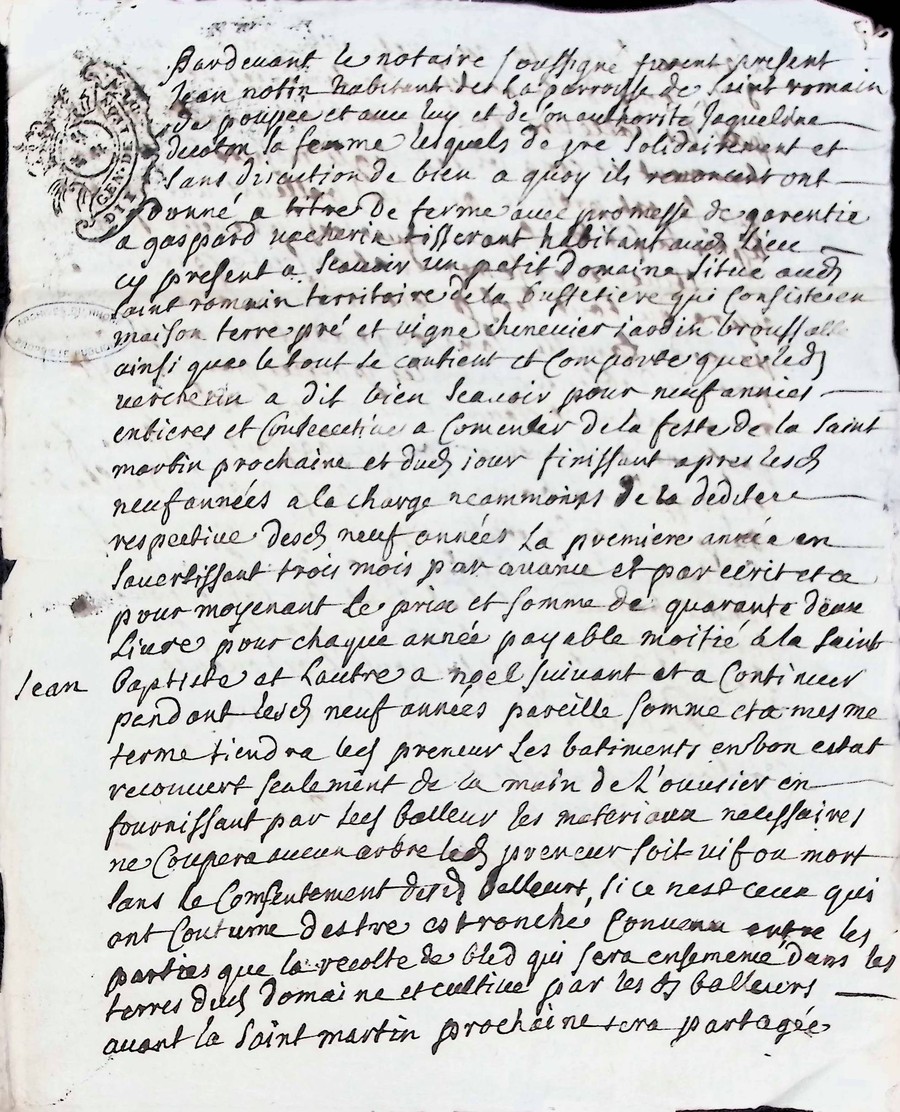 Pardevant le notaire soussigné furent present
Jean notin habitant de la parroisse de Saint romain
de popee et avec luy et de son authorité Jaqueline
sa femme lesquels de gre solidairement et
sans division de bien a quoy ils renoncent ont
donné a titre de ferme avec promesse de garentie
a gaspard vacherin tisserant habitant aud lieu
cy present a Scavoir un petit domaine situé aud
saint romain territoire de la bussetiere qui Consiste en
maison terre pré et vigne chenevier jardin
ainsi que le tout se contient et Comporte que led
vercherin a dit bien scavoir pour neuf années
entieres et Consecutive a Comencer de la feste de la Saint
martin prochaine et dud jour finissant apres lesd
neuf années a la charge neammoins de la dedite
respective desd neuf années La premiere année en
savertissant trois mois par avance et par ecrit et ce
pour moyenant le prix et somme de quarante deux
Livre pour chaque année payable moitié a la Saint
Jean Baptiste et Lautre a noel suivant et a Continuer
pendant lesd neuf années pareille somme et a mesme
terme tiendra led preneur Les batiments en bon estat
recouvert seulement de la main de L'ouvrier en
fournissant par led balleur les materiaux necessaires
ne Coupera aucun arbre led preneur soit vif ou mort
sans le Consentement desd Balleurs, si ce nest ceux qui
ont Coutume destre estronché, Convenu entre les
parties que la recolte de bled qui sera ensemencé dans les
terres dud Domaine et cultivé par les d balleurs
avant la Saint martin prochaine sera partagée